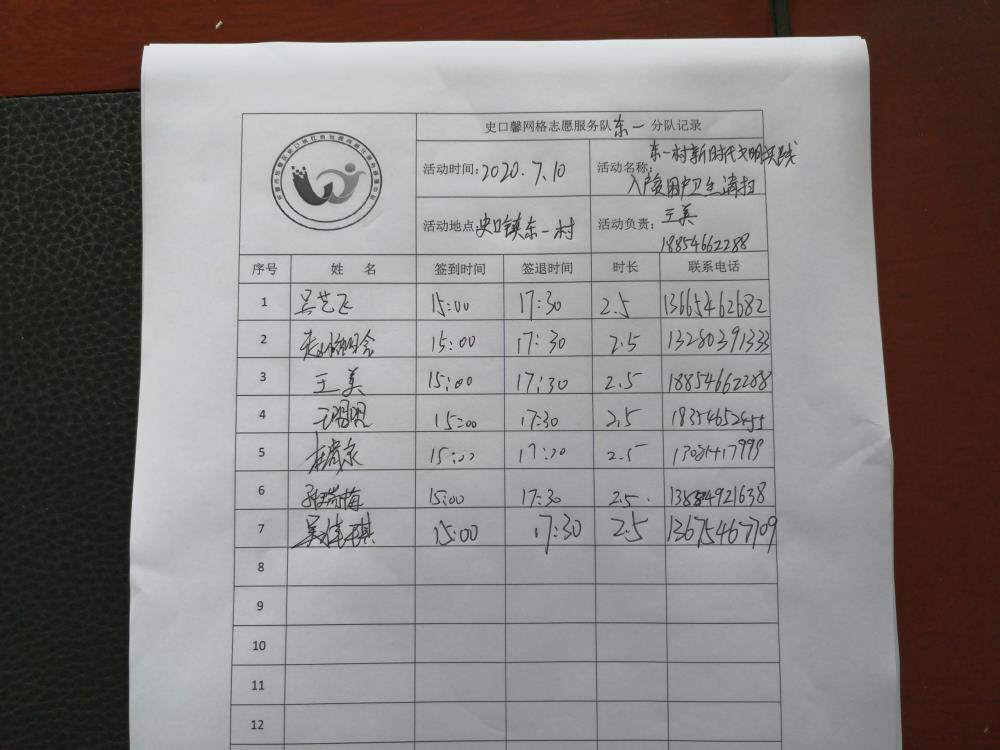 史口馨网格志愿服务队东一分队记录
活动时间:2020.7.10
活动名称:东一村新时代文明实践
入户贫困户卫生清扫
活动地点 史口镇东一村
活动负责:王美
18854662288
序号 姓 名 签到时间 签退时间 时长 联系电话
1 吴艺飞 15:00 17:30 2.5 13665462682
2 15:00 17:30 2.5 13280391333
3 王美 15:00 17:30 2.5 18854662288
4 15:00 17:30 2.5
5 15:00 2.5
6 孙瑞梅 15:00 17:30 2.5
7 吴佳琪 15:00 17:30 2.5 13675467709
8
9
10
11
12